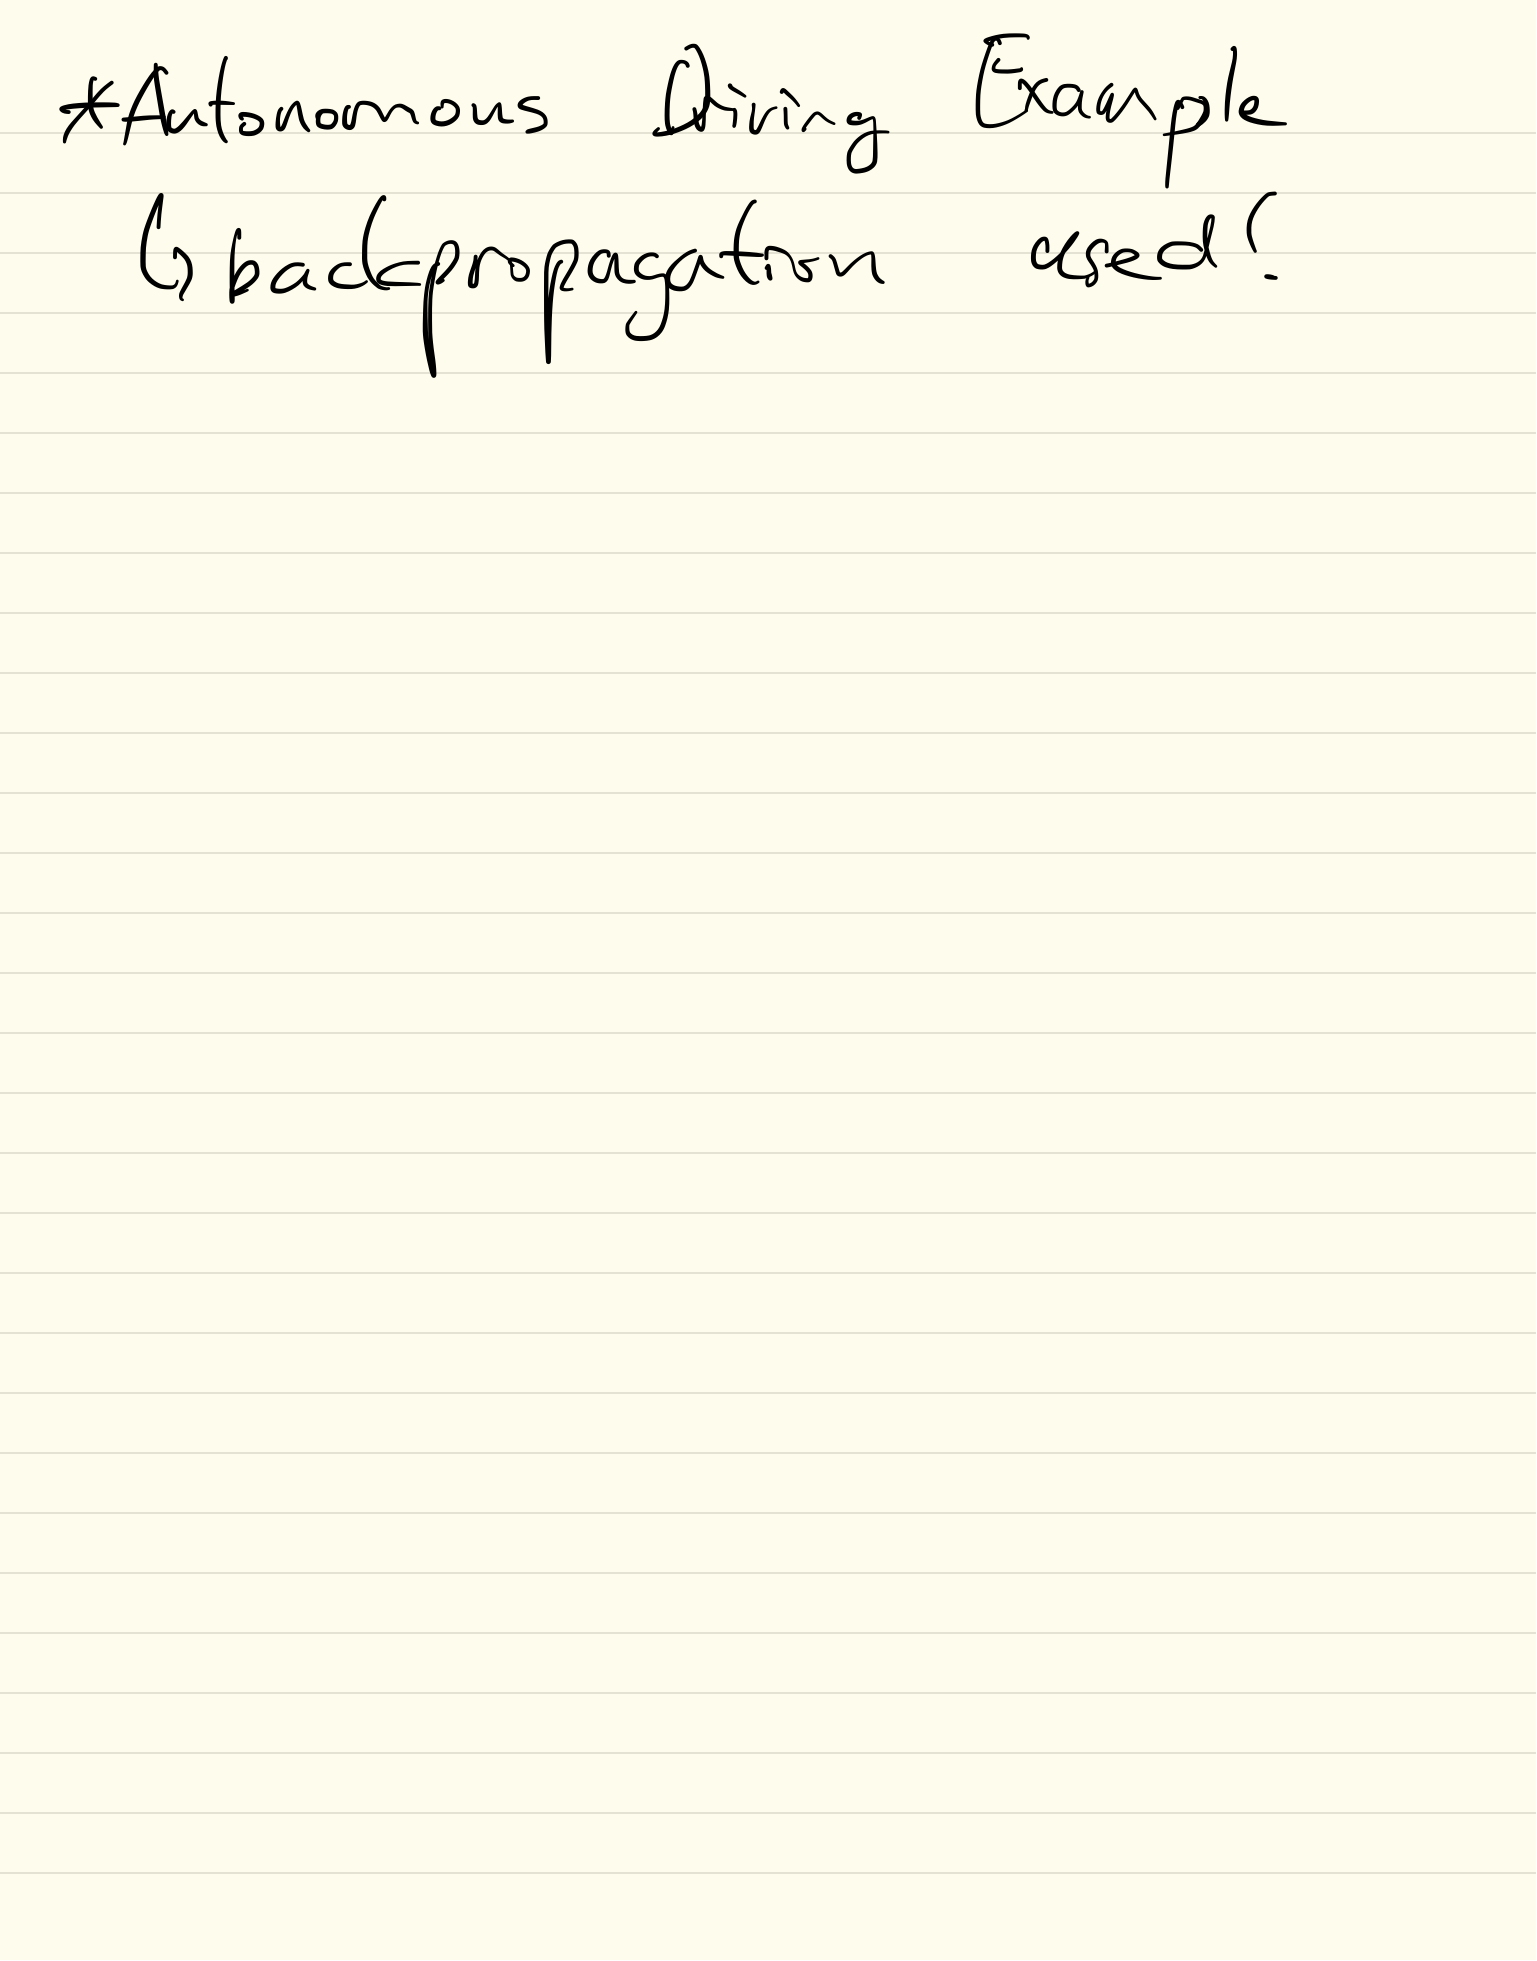 *Autonomous Driving Example
↳ backpropagation used!